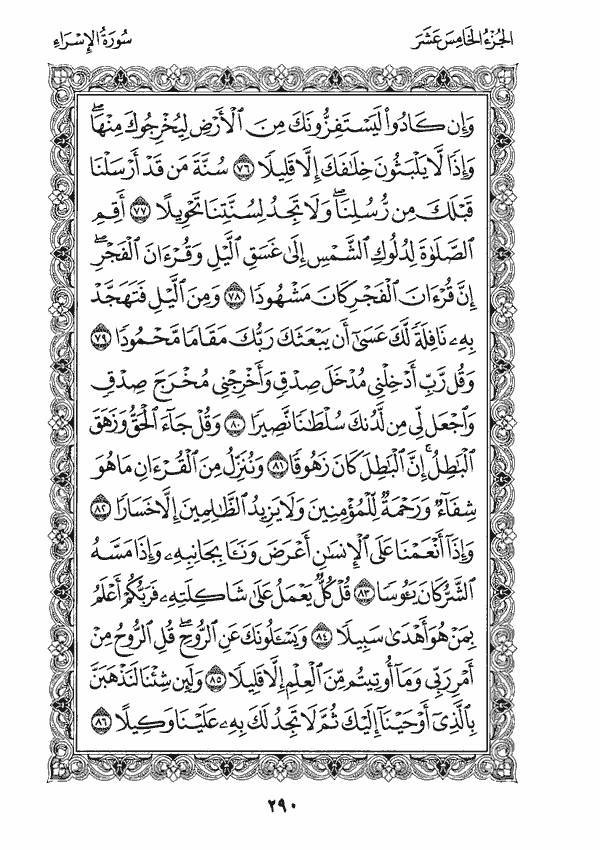 الجُزْءُ الخَامِسَ عَشَرَ
سُورَةُ الإِسْرَاءِ
وَإِن كَادُوا۟ لَيَسْتَفِزُّونَكَ مِنَ ٱلْأَرْضِ لِيُخْرِجُوكَ مِنْهَا ۖ
وَإِذًا لَّا يَلْبَثُونَ خِلَٰفَكَ إِلَّا قَلِيلًا ٧٦ سُنَّةَ مَن قَدْ أَرْسَلْنَا
قَبْلَكَ مِن رُّسُلِنَا ۖ وَلَا تَجِدُ لِسُنَّتِنَا تَحْوِيلًا ٧٧ أَقِمِ
ٱلصَّلَوٰةَ لِدُلُوكِ ٱلشَّمْسِ إِلَىٰ غَسَقِ ٱلَّيْلِ وَقُرْءَانَ ٱلْفَجْرِ ۖ
إِنَّ قُرْءَانَ ٱلْفَجْرِ كَانَ مَشْهُودًا ٧٨ وَمِنَ ٱلَّيْلِ فَتَهَجَّدْ
بِهِۦ نَافِلَةً لَّكَ عَسَىٰٓ أَن يَبْعَثَكَ رَبُّكَ مَقَامًا مَّحْمُودًا ٧٩
وَقُل رَّبِّ أَدْخِلْنِى مُدْخَلَ صِدْقٍ وَأَخْرِجْنِى مُخْرَجَ صِدْقٍ
وَٱجْعَل لِّى مِن لَّدُنكَ سُلْطَٰنًا نَّصِيرًا ٨٠ وَقُلْ جَآءَ ٱلْحَقُّ وَزَهَقَ
ٱلْبَٰطِلُ ۚ إِنَّ ٱلْبَٰطِلَ كَانَ زَهُوقًا ٨١ وَنُنَزِّلُ مِنَ ٱلْقُرْءَانِ مَا هُوَ
شِفَآءٌ وَرَحْمَةٌ لِّلْمُؤْمِنِينَ ۙ وَلَا يَزِيدُ ٱلظَّٰلِمِينَ إِلَّا خَسَارًا ٨٢
وَإِذَآ أَنْعَمْنَا عَلَى ٱلْإِنسَٰنِ أَعْرَضَ وَنَـَٔا بِجَانِبِهِۦ ۖ وَإِذَا مَسَّهُ
ٱلشَّرُّ كَانَ يَـُٔوسًا ٨٣ قُلْ كُلٌّ يَعْمَلُ عَلَىٰ شَاكِلَتِهِۦ فَرَبُّكُمْ أَعْلَمُ
بِمَنْ هُوَ أَهْدَىٰ سَبِيلًا ٨٤ وَيَسْـَٔلُونَكَ عَنِ ٱلرُّوحِ ۖ قُلِ ٱلرُّوحُ مِنْ
أَمْرِ رَبِّى وَمَآ أُوتِيتُم مِّنَ ٱلْعِلْمِ إِلَّا قَلِيلًا ٨٥ وَلَئِن شِئْنَا لَنَذْهَبَنَّ
بِٱلَّذِىٓ أَوْحَيْنَآ إِلَيْكَ ثُمَّ لَا تَجِدُ لَكَ بِهِۦ عَلَيْنَا وَكِيلًا ٨٦
٢٩٠